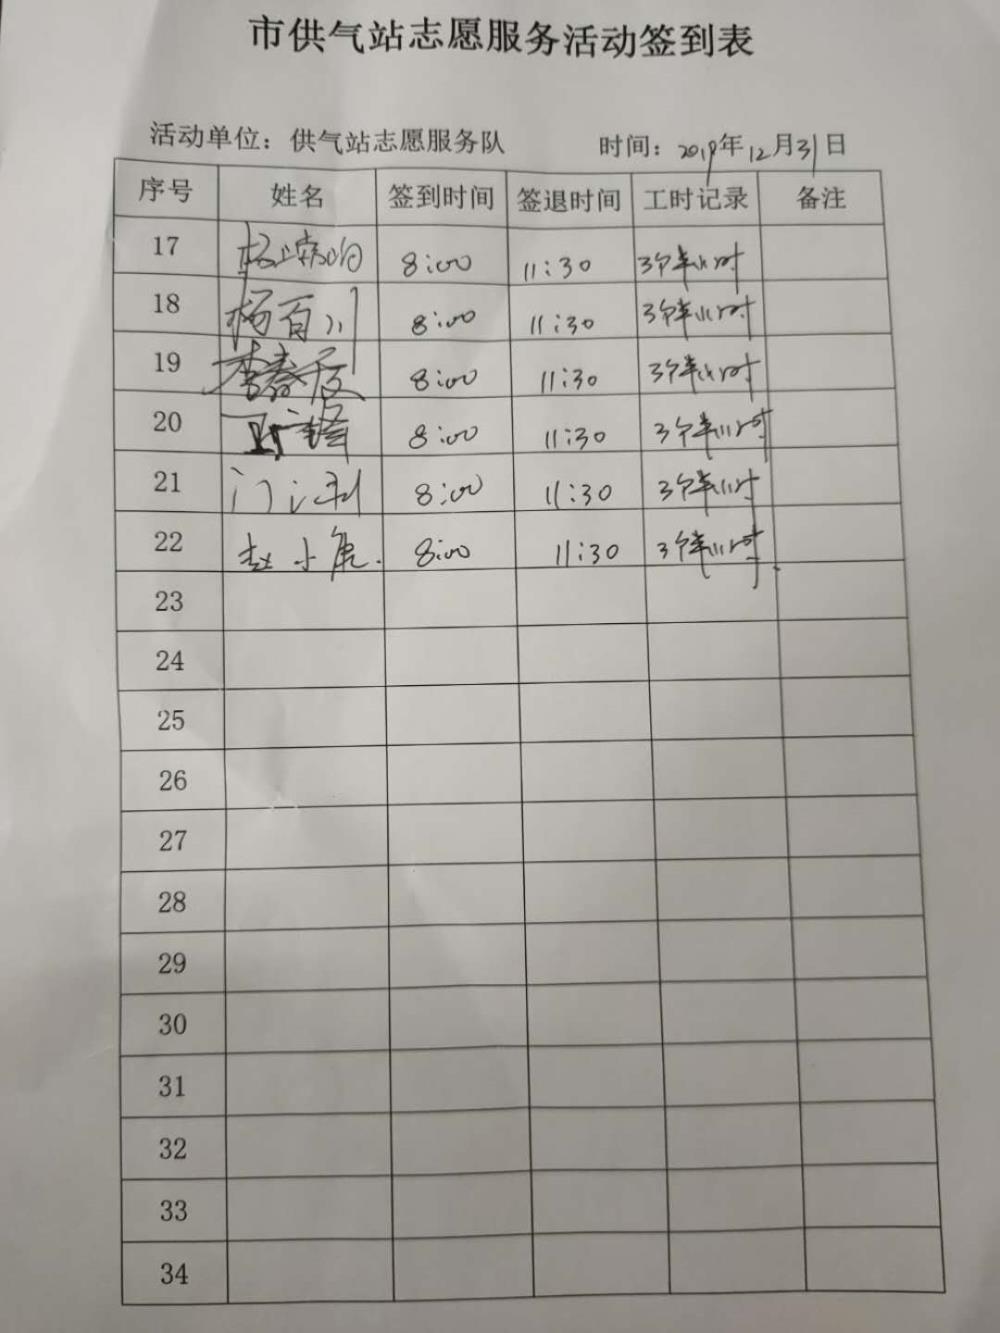 市供气站志愿服务活动签到表
活动单位：供气站志愿服务队 时间：2019年12月31日
序号 姓名 签到时间 签退时间 工时记录 备注
17 8:00 11:30 3个半小时
18 杨百川 8:00 11:30 3个半小时
19 李春 8:00 11:30 3个半小时
20 8:00 11:30 3个半小时
21 门 8:00 11:30 3个半小时
22 赵小虎 8:00 11:30 3个半小时
23
24
25
26
27
28
29
30
31
32
33
34